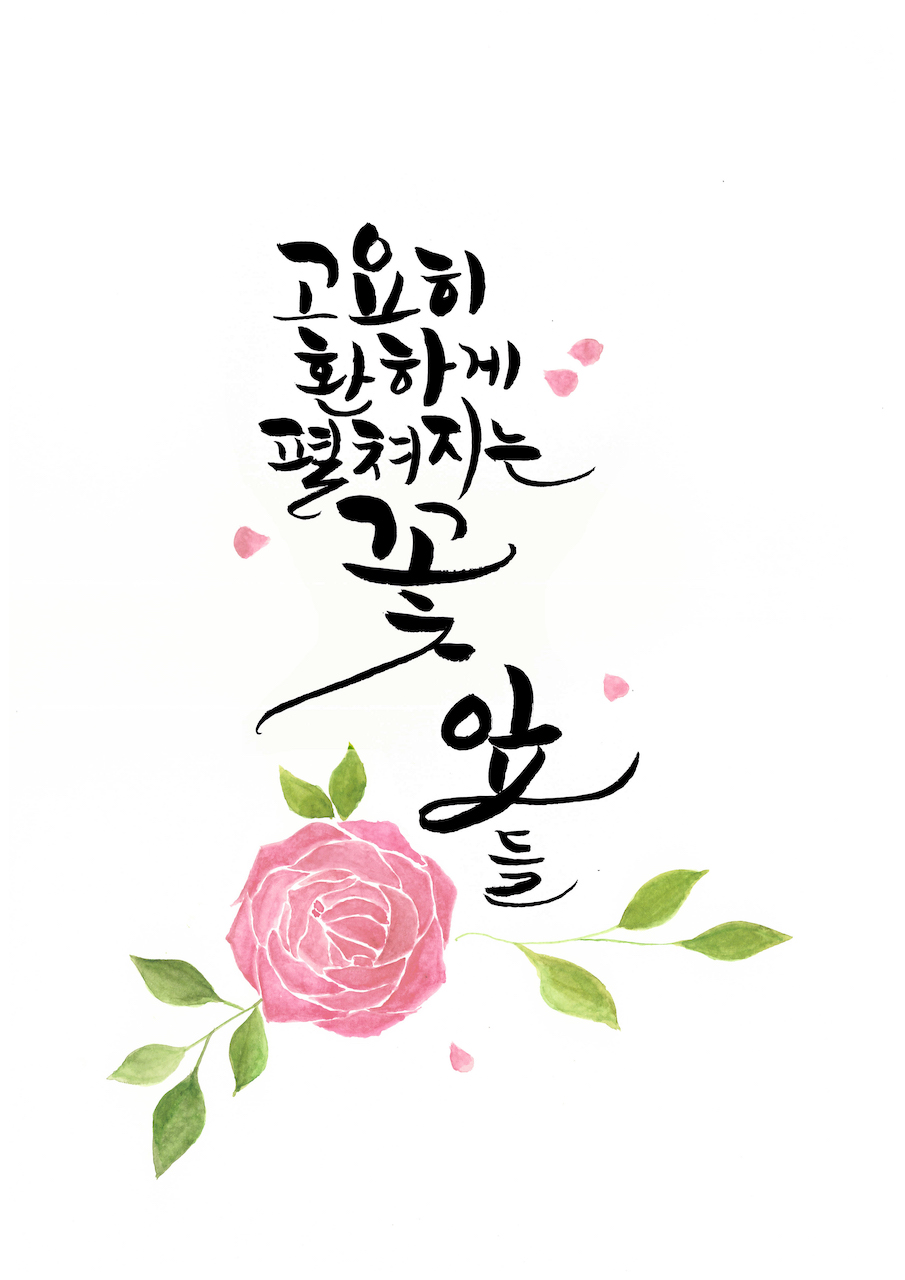 고요히
환하게
펼쳐지는
꽃
잎
들